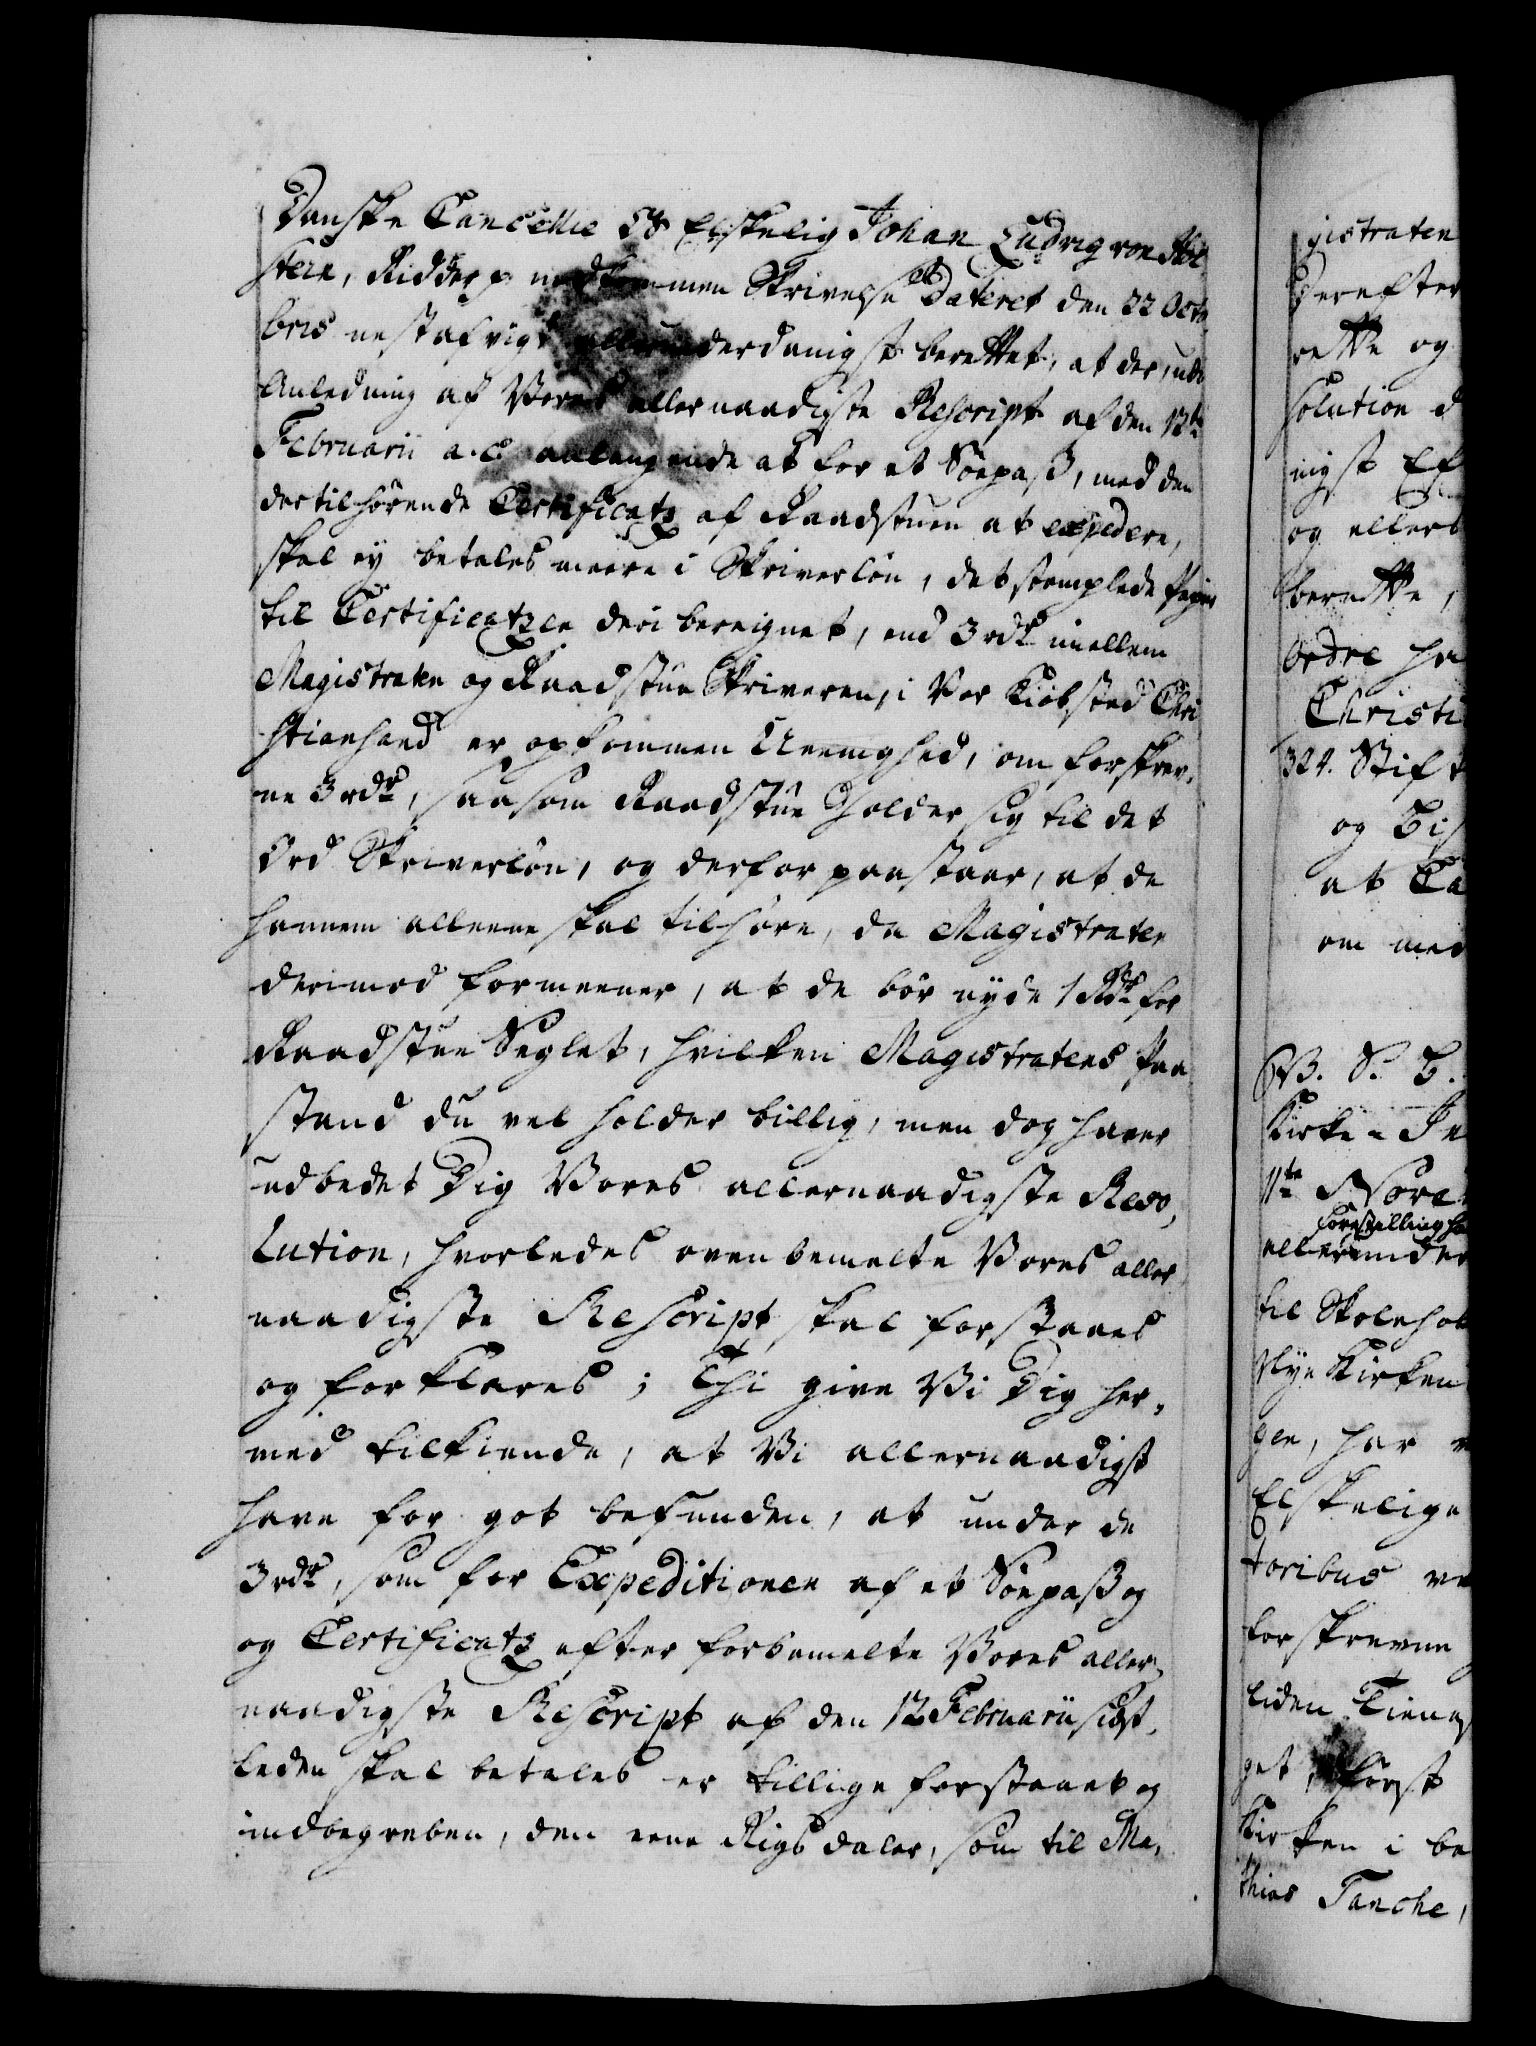 Danske Cancellie Os Elskelig Johan Ludvig von Hol
stein, Ridder p. indkommen Skrivelse Dateret den 22 Octo
bris nestafvigt allerunderdanigst berettet, at der, udi
Anledning af Vores allernaadigste Rescript af den 12te
Februarii a. c. anlangende at for et Söepass, med den
dertilhörende Certificatz af Raadstuen at expedere,
skal ey betales meere i Skriverlön, det stemplede Papiir
til Certificatzen deri bereignet, end 3 rdr imellem
Magistraten og Raadstue Skriveren, i Vor Kiöbsted Chri
stiansand er opkommen Ueenighed, om forskrev,
ne 3 rdr, saasom Raadstue holder sig til det
Ord Skriverlön, og derfor paastaar, at de
hannem alleene skal tilhöre, da Magistraten
derimod formeener, at de bör nyde 1 Rdr for
Raadstue Seglet, hvilken Magistratens Paa
stand du vel holder billig, men dog haver
udbedet Dig Vores allernaadigste Reso,
lution, hvorledes ovenbemelte Vores aller
naadigste Rescript skal forstaaes
og forklares; Thi give Vi Dig her,
med tilkiende, at Vi allernaadigst
have for got befunden, at under de
3 rdr, som for Expeditionen af et Söepass og
og Certificatz efter forbemelte Vores aller,
naadigste Rescript af den 12 Februarii sidst,
leden skal betales er tillige forstaaet og
indbegreben, den eene Rigsdaler, som til Ma,
gistraten
Derefter
rette og
solution d
nigst Ef
og allerb
berette,
Ordre ha
Christi
324. Stift
og Bis
at Ca
om med
Kirke-In
11te Nove
forestilling ha
allerunder
til Skoleho
Nye Kirken
gen, har
Elskelige
toribus
forskrevne
liden Tienes
get, först
Kirken i be
thias Tanche,